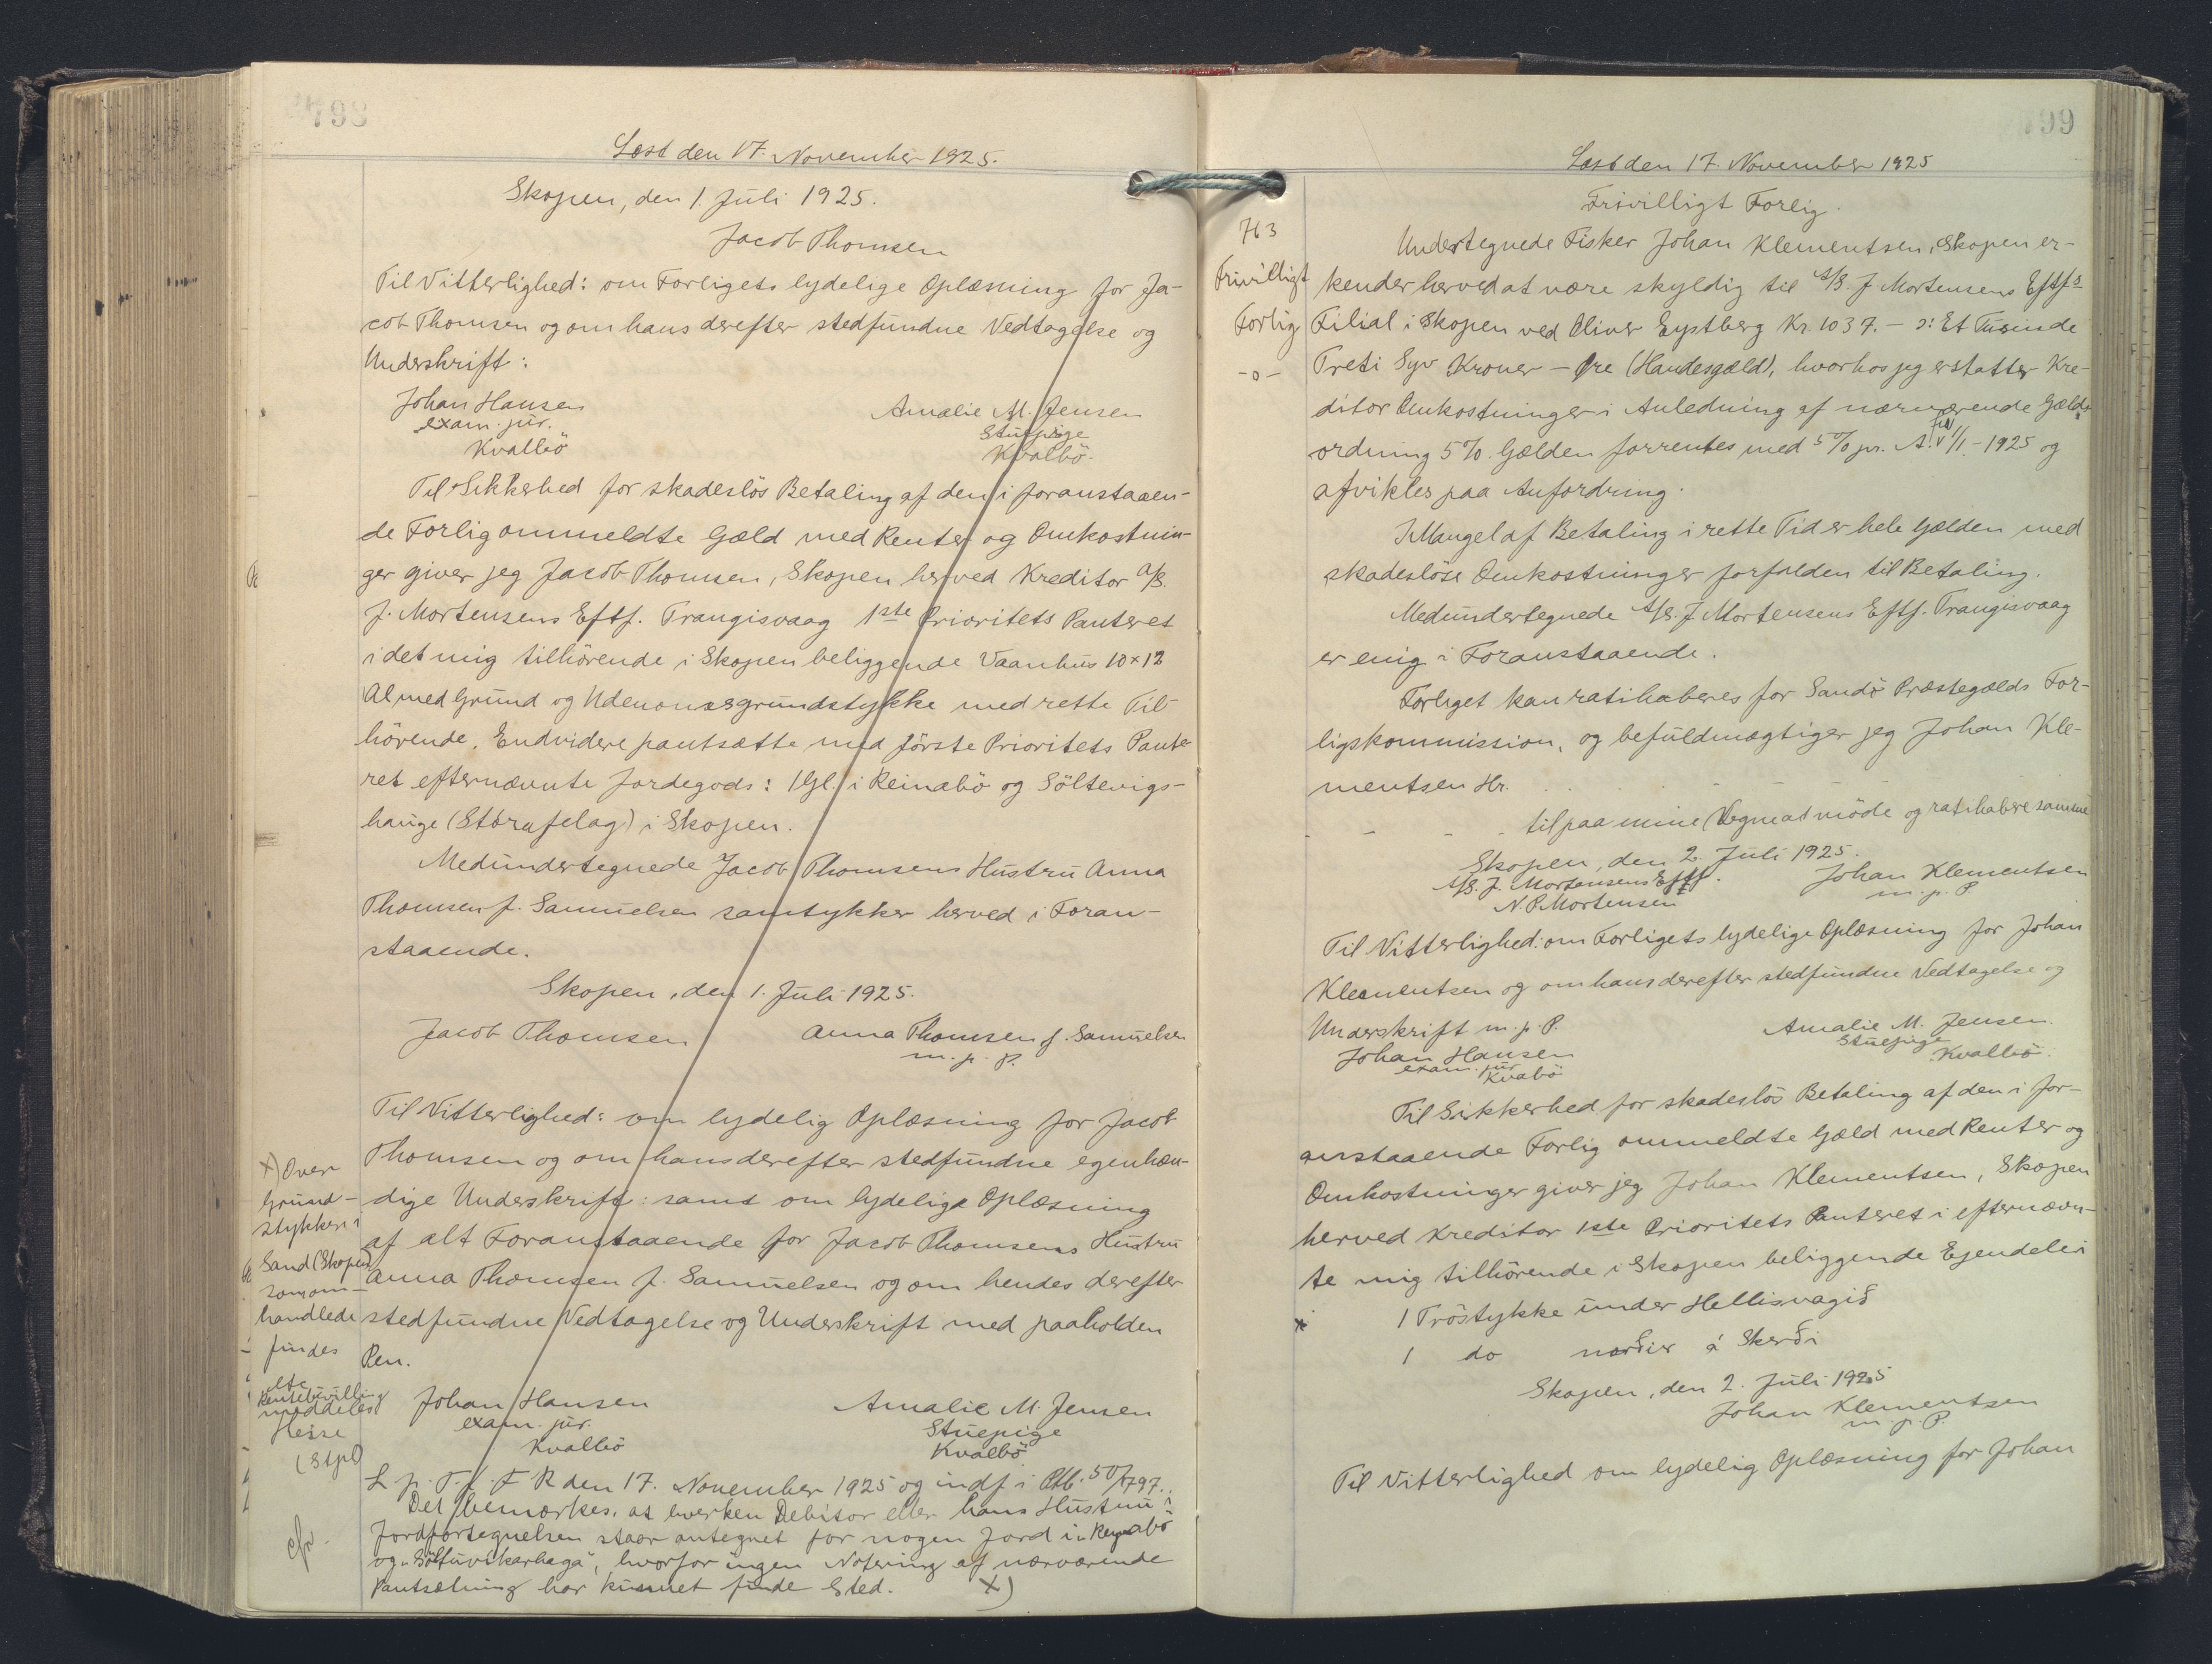 798
Læst den 17. November 1925.
Skopen, den 1. Juli 1925.
Jacob Thomsen
Til Vitterlighed: om Forligets lydelige Oplæsning for Ja-
cob Thomsen og om hans derefter stedfundne Vedtagelse og
Underskrift:
Johan Hansen
exam. jur.
Kvalbö
Amalie M. Jensen
Stuepige
Kvalbö.
Til Sikkerhed for skadeslös Betaling af den i foranstaaen-
de Forlig ommeldte Gæld med Renter og Omkostnin-
ger giver jeg Jacob Thomsen, Skopen herved Kreditor A/S
J. Mortensens Eftf. Trangisvaag 1ste Prioritets Panteret
i det mig tilhörende i Skopen beliggende Vaanhus 10 x 12
Al med Grund og Udenomsgrundstykke med rette Til-
hörende. Endvidere pantsætte med förste Prioritets Pante-
ret efternævnte Jordegods: 1 Gl. i Reinabö og Söltevigs-
hauge (Stórafelag) i Skopen.
Medundertegnede Jacob Thomsens Hustru Anna
Thomsen f. Samuelsen samtykker herved i Foran-
staaende.
Skopen, den 1. Juli 1925.
Jacob Thomsen
Anna Thomsen f. Samuelsen
m. p. P.
Til Vitterlighed: om lydelig Oplæsning for Jacob
Thomsen og om hans derefter stedfundne egenhæn-
dige Underskrift: samt om lydelige Oplæsning
af alt Foranstaaende for Jacob Thomsens Hustru
Anna Thomsen f. Samuelsen og om hendes derefter
stedfundne Vedtagelse og Underskrift med paaholden
Pen.
Johan Hansen
exam. jur.
Kvalbö
Amalie M. Jensen
Stuepige
Kvalbö
L. p. T. f. F R den 17. November 1925 og indf i Ptb. 50/797.
Det bemærkes, at hverken Debitor eller hans Hustru i
Jordfortegnelsen staar antegnet for nogen Jord i "Reynabö
og "Söltuvikarhaga", hvorfor ingen Notering af nærværende
Pantsætning har kunnet finde Sted. x)
x) Over
Grund-
stykker i
Sand (Skopen)
som om-
handlede
findes
meddeles
Hesse
(Stpl)
cfr.
799
Læst den 17. November 1925
763
Frivilligt
Forlig
-o-
Frivilligt Forlig.
Undertegnede Fisker Johan Klementsen, Skopen er-
kender herved at være skyldig til A/S. J Mortensens Eftf.s
Filial i Skopen ved Oliver Eystberg Kr. 1037.- ɔ: Et Tusinde
Treti Syv Kroner - Øre (Handesgæld), hvorhos jeg erstatter Kre-
ditor Omkostninger i Anledning af nærværende Gælds
ordning 5%. Gælden forrentes med 5% pr. A. fra 1/1 - 1925 og
afvikles paa Anfordring.
I Mangel af Betaling i rette Tid er hele Gælden med
skadeslöse Omkostninger forfalden til Betaling.
Medundertegnede A/S. J Mortensens Eftf. Trangisvaag
er enig i Foranstaaende.
Forliget kan ratihaberes for Sandö Præstegælds For-
ligskommission, og befuldmægtiger jeg Johan Kle-
mentsen Hr.
til paa mine Vegne at möde og ratihabere samme
Skopen, den 2. Juli 1925.
A/S. J. Mortensens Eftf.
N. P. Mortensen
Johan Klementsen
m. p. P
Til Vitterlighed: om Forligets lydelige Oplæsning for Johan
Klementsen og om hans derefter stedfundne Vedtagelse og
Underskrift m. p. P.
Johan Hansen
exam. jur
Kvabö
Amalie M. Jensen
Stuepige
Kvalbö.
Til Sikkerhed for skadeslös Betaling af den i for-
anstaaende Forlig ommeldte Gæld med Renter og
Omkostninger giver jeg Johan Klementsen, Skopen
herved Kreditor 1ste Prioritets Panteret i efternævn-
te mig tilhörende i Skopen beliggende Ejendele:
x 1 Tröstykke under Hellisvagið
1 do norðier á Skerði
Skopen, den 2. Juli 1925
Johan Klementsen
m. p. P.
Til Vitterlighed om lydelig Oplæsning for Johan